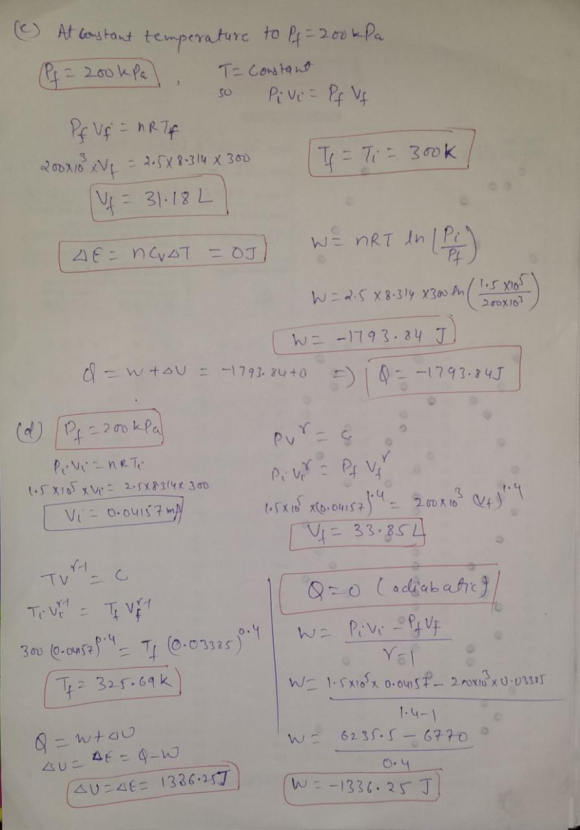 (c) At constant temperature to Pf = 200 kPa
Pf = 200 kPa , T = Constant
so Pi Vi = Pf Vf
Pf Vf = nRTf
200x10³ xVf = 2.5 x 8.314 x 300
Vf = 31.18 L
Tf = Ti = 300K
ΔE = nCvΔT = 0J
W = nRT ln (Pi/Pf)
W = 2.5 x 8.314 x300 ln (1.5 x10⁵/200x10³)
W = -1793.84 J
Q = W + ΔU = -1793.84+0 => Q = -1793.84J
(d) Pf = 200 kPa
Pi Vi = nRTi
1.5 x10⁵ x Vi = 2.5x8.314x300
Vi = 0.04157 m³
PVʳ = C
Pi Viʳ = Pf Vfʳ
1.5x10⁵ x(0.04157)¹·⁴ = 200x10³ (Vf)¹·⁴
Vf = 33.85L
TVʳ⁻¹ = C
Ti Viʳ⁻¹ = Tf Vfʳ⁻¹
300 (0.04157)⁰·⁴ = Tf (0.03385)⁰·⁴
Tf = 325.69K
Q = W + ΔU
ΔU = ΔE = Q-W
ΔU = ΔE = 1336.25J
Q = 0 (adiabatic)
W = Pi Vi - Pf Vf / r-1
W = 1.5x10⁵ x 0.04157 - 200x10³ x 0.03385 / 1.4-1
W = 6235.5 - 6770 / 0.4
W = -1336.25 J